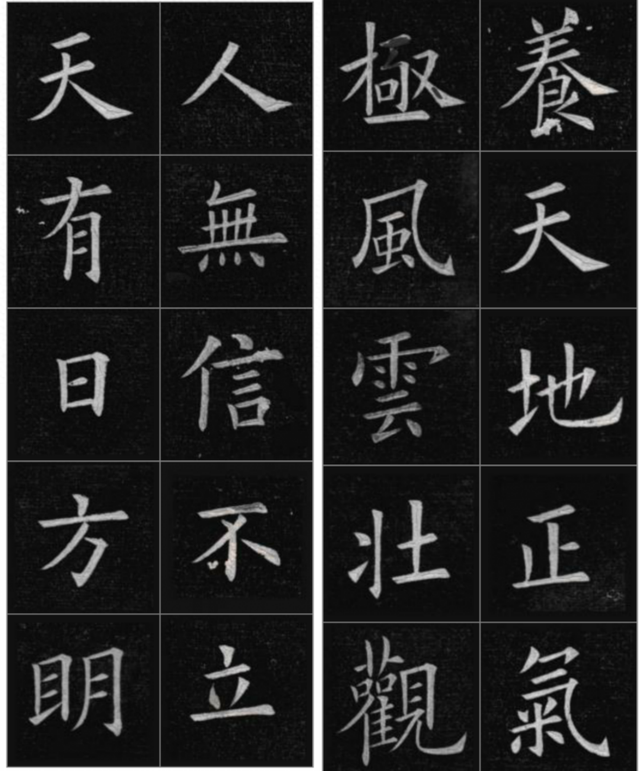 養天地正氣
極風雲壯觀
人無信不立
天有日方眀